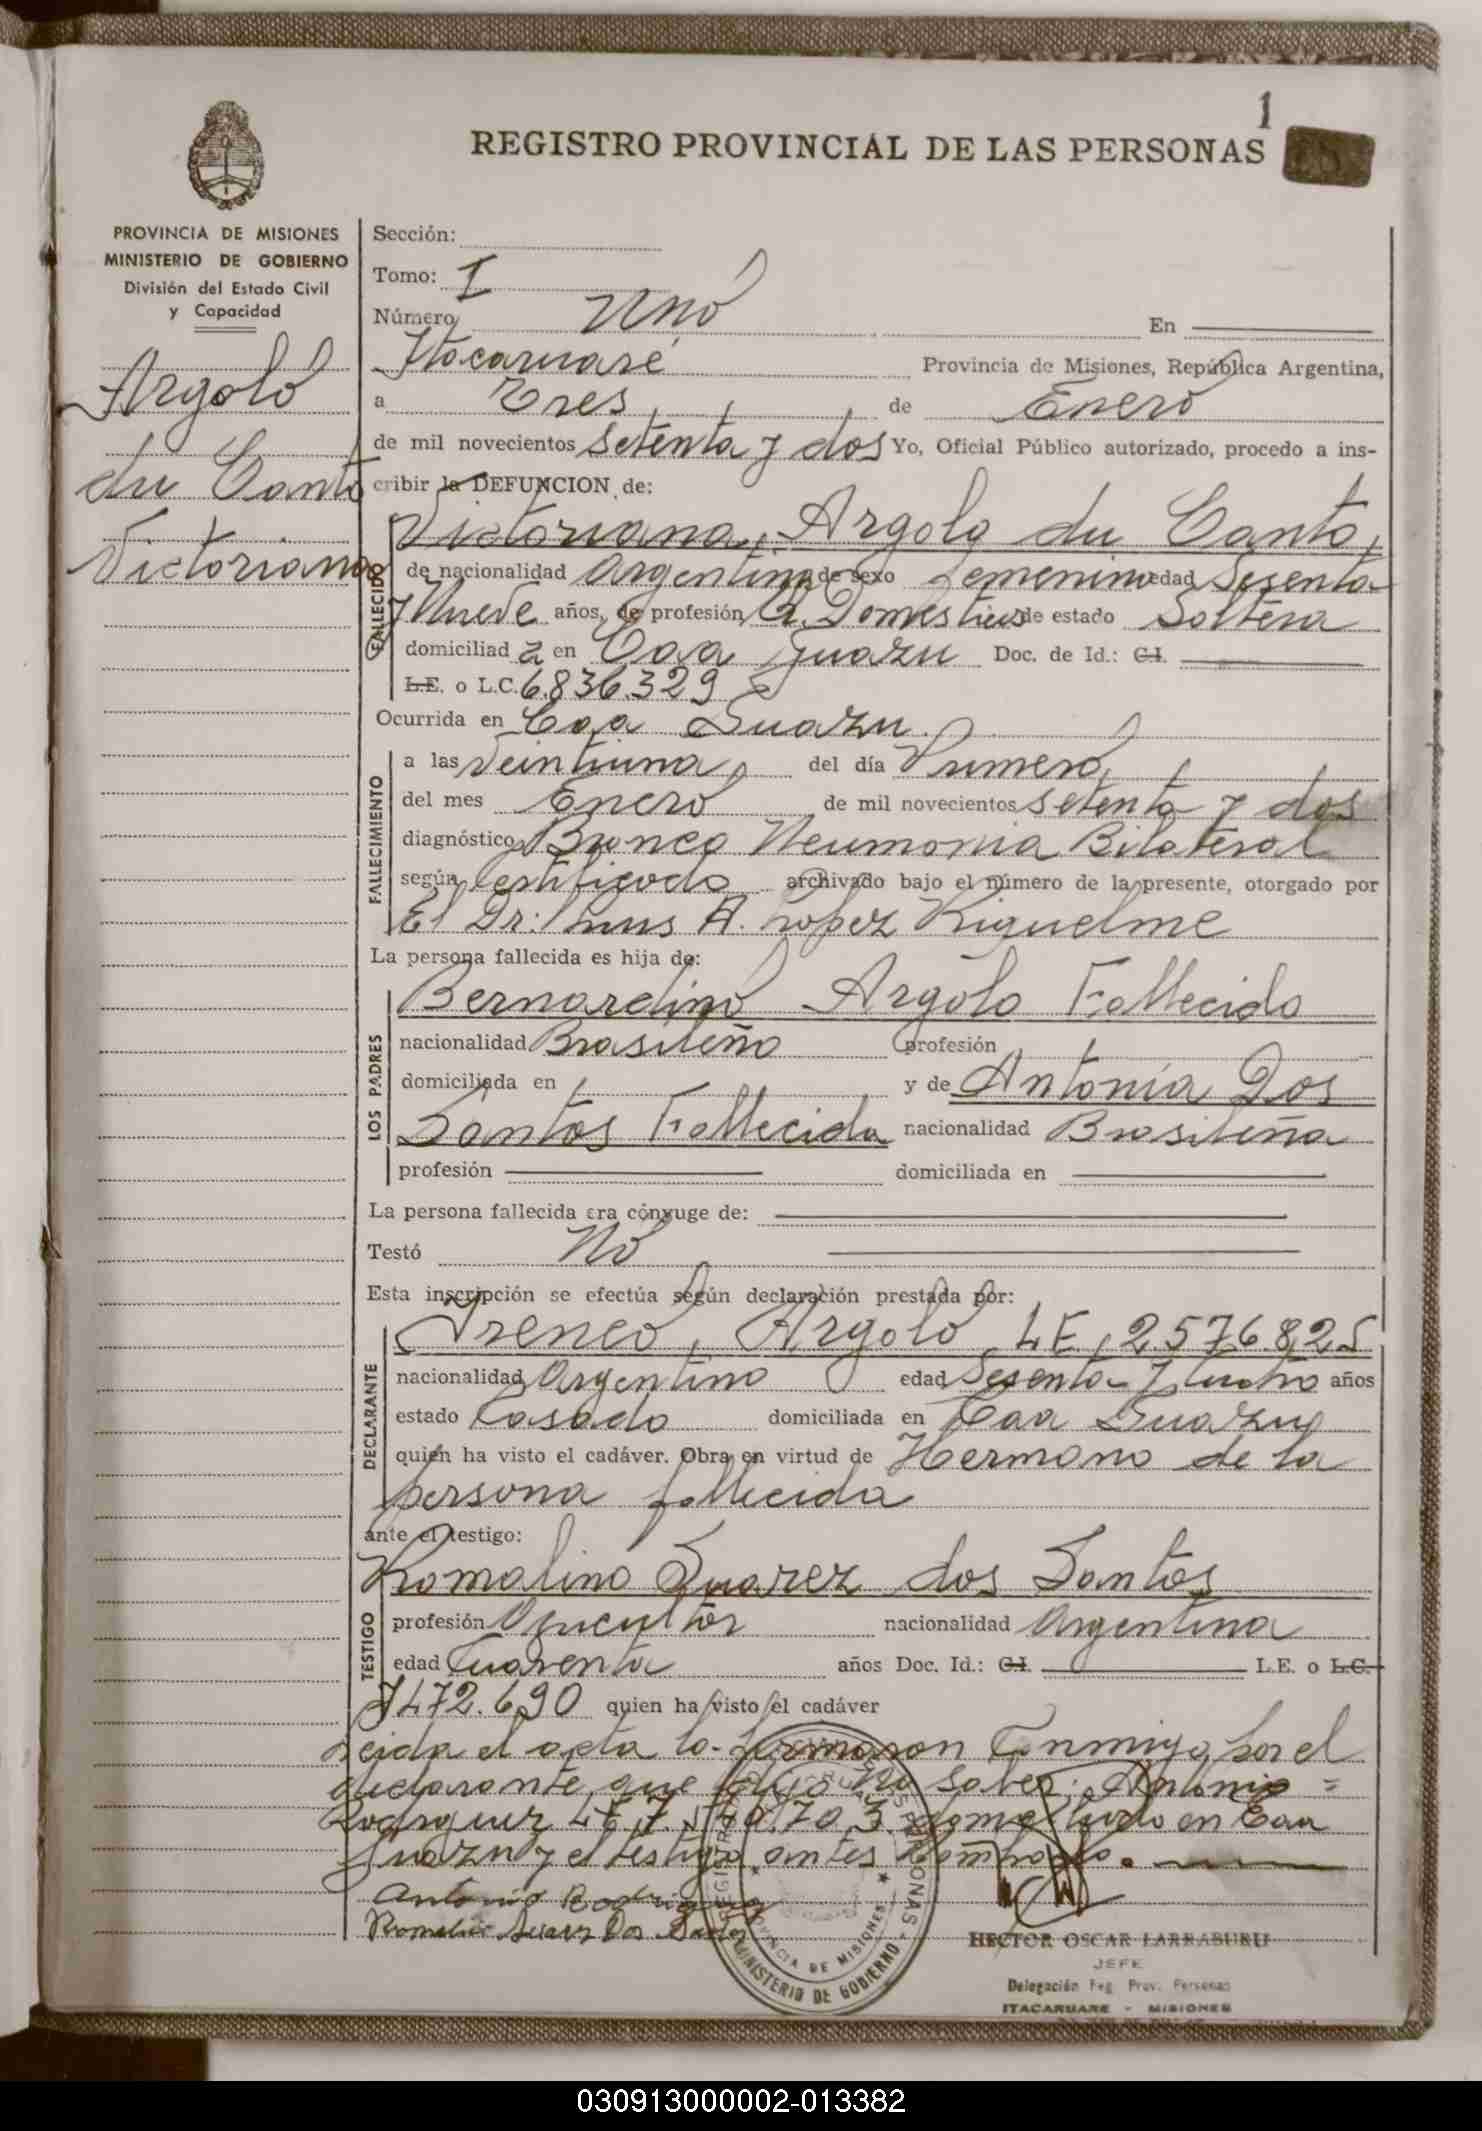 1
REGISTRO PROVINCIAL DE LAS PERSONAS
PROVINCIA DE MISIONES
MINISTERIO DE GOBIERNO
División del Estado Civil
y Capacidad
Argolo
du Canto
Victoriana
Sección:
Tomo: I
Número Uno En
Itacaruaré Provincia de Misiones, República Argentina,
a Tres, de Enero
de mil novecientos Setenta y dos Yo, Oficial Público autorizado, procedo a ins-
cribir la DEFUNCION de:
Victoriana, Argolo du Canto,
FALLECIDO
de nacionalidad Argentina de sexo Femenino edad Sesenta
y Nueve años, de profesión Q. Domesticos de estado Soltera
domiciliad a en Caa Guazu Doc. de Id.: C.I.
L.E. o L.C. 6.836.329
Ocurrida en Caa Guazu.
FALLECIMIENTO
a las Veintiuna, del día Primero,
del mes Enero de mil novecientos setenta y dos
diagnóstico Bronco Neumonia Bilateral
según Certificado archivado bajo el número de la presente, otorgado por
El Dr: Luis A. López Riquelme
La persona fallecida es hija de:
LOS PADRES
Bernardino Argolo Fallecido
nacionalidad Brasileño profesión
domiciliada en y de Antonia Dos
Santos Fallecida nacionalidad Brasileña
profesión domiciliada en
La persona fallecida era cónyuge de:
Testó No
Esta inscripción se efectúa según declaración prestada por:
DECLARANTE
Ireneo, Argolo L.E., 2.576.825
nacionalidad Argentino edad Sesenta y Cuatro años
estado Casado domiciliada en Caa Guazu
quién ha visto el cadáver. Obra en virtud de Hermano de la
persona fallecida
ante el testigo:
Romalino Suarez dos Santos
TESTIGO
profesión Agricultor nacionalidad Argentina
edad Cuarenta años Doc. Id.: C.I. L.E. o L.C.
7.472.690 quien ha visto el cadáver
Leida el acta la firmaron Conmigo, por el
declarante que dijo No saber: Antonio
Rodriguez L.E. 7. 703 domiciliado en Caa
Guazu y el testigo antes
Antonio Rodriguez
Romalino Suarez Dos Santos
REGISTRO PERSONAS
PROVINCIA DE MISIONES
MINISTERIO DE GOBIERNO
HECTOR OSCAR LARRABURU
JEFE
Delegación Reg. Prov. Personas
ITACARUARE - MISIONES
030913000002-013382